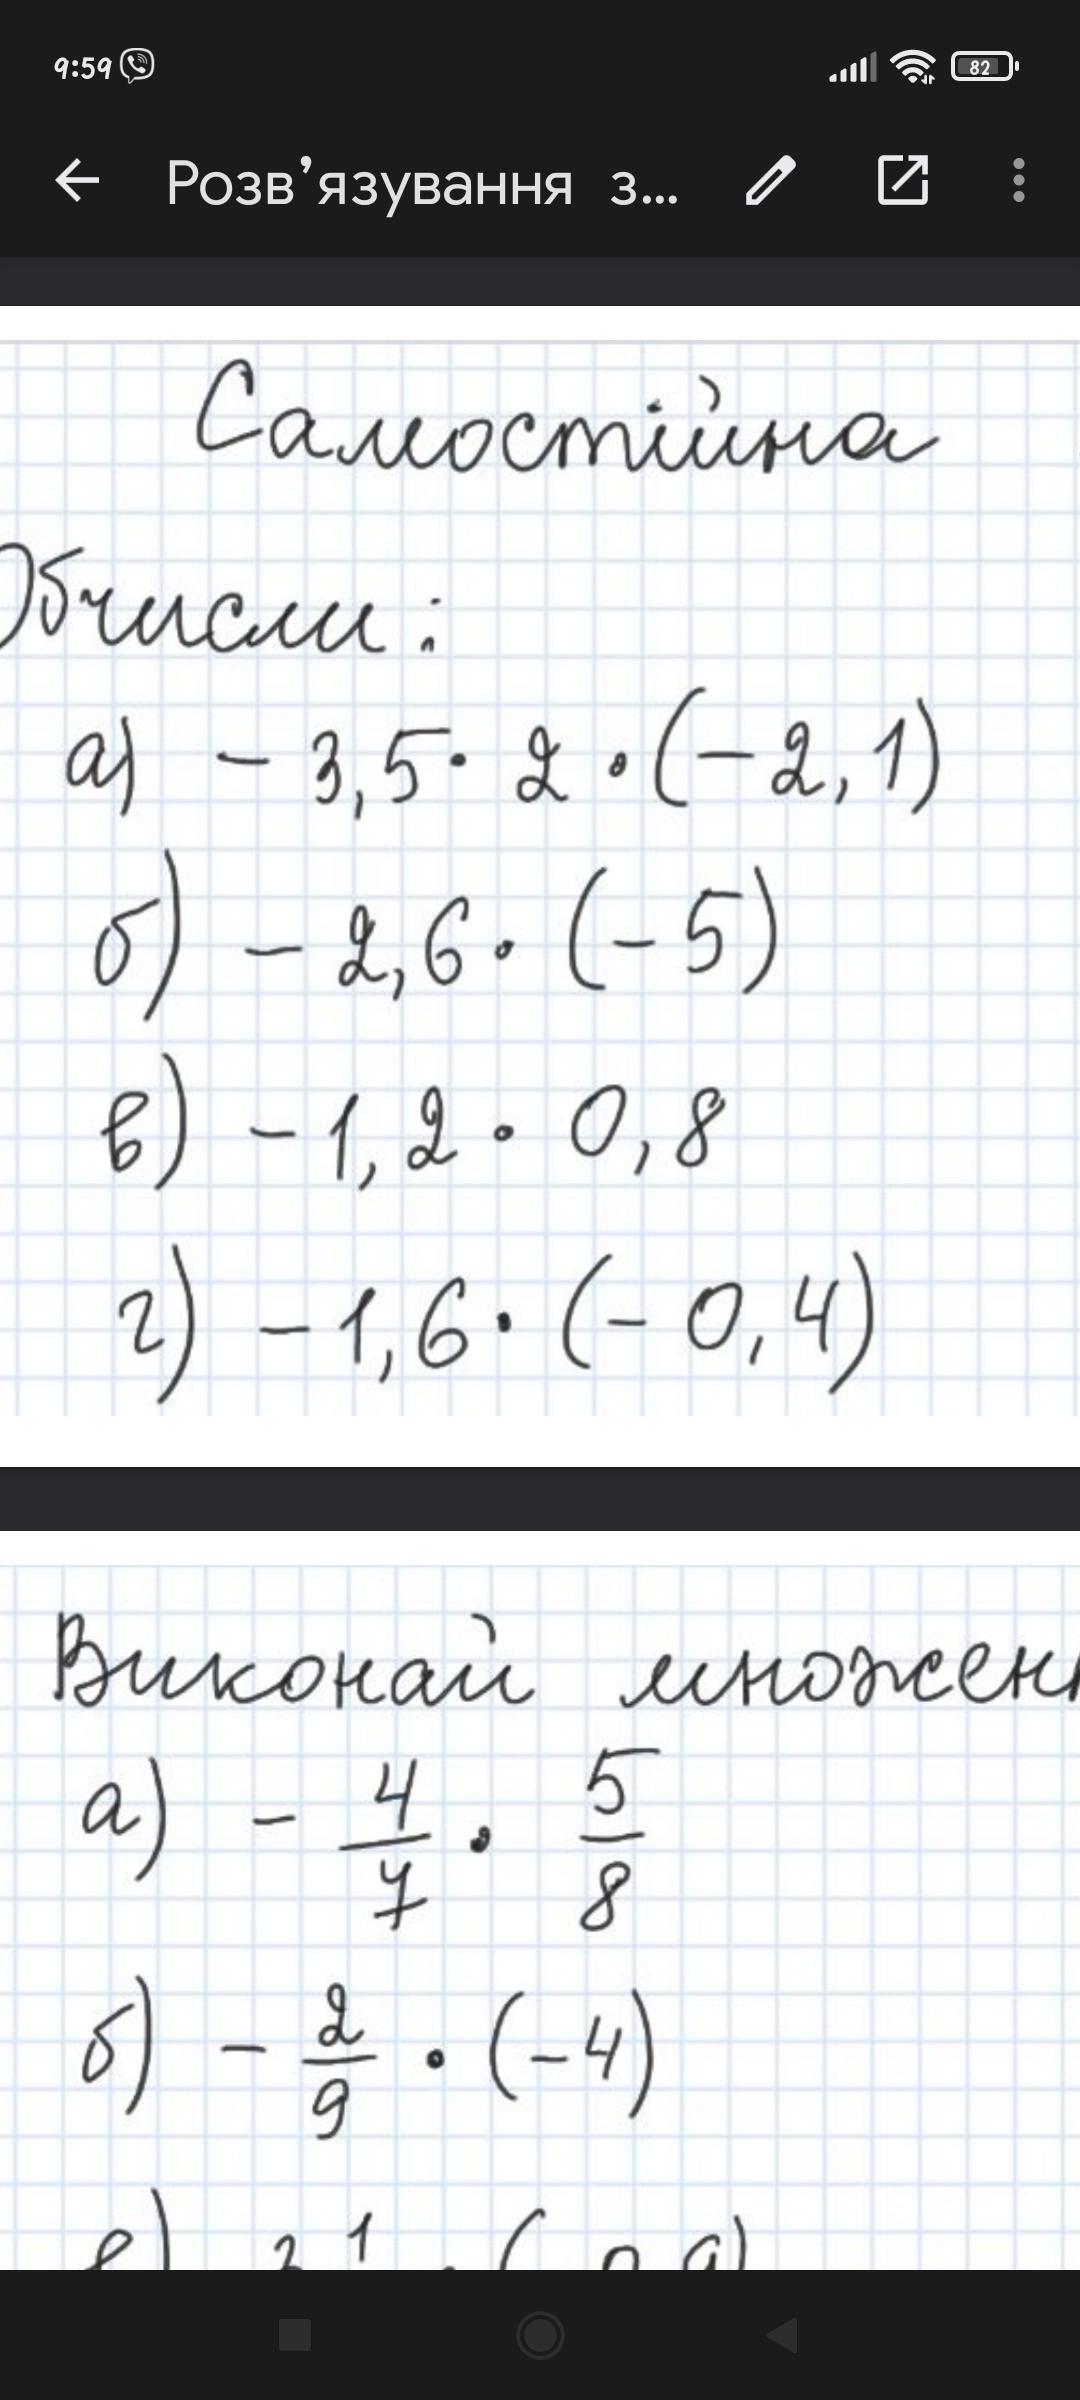 9:59
82
Розв’язування з...
Самостійна
Обчисли:
а) - 3,5 · 2 · (-2,1)
б) - 2,6 · (-5)
в) - 1,2 · 0,8
г) - 1,6 · (- 0,4)
Виконай множен
а) - 4/7 · 5/8
б) - 2/9 · (-4)